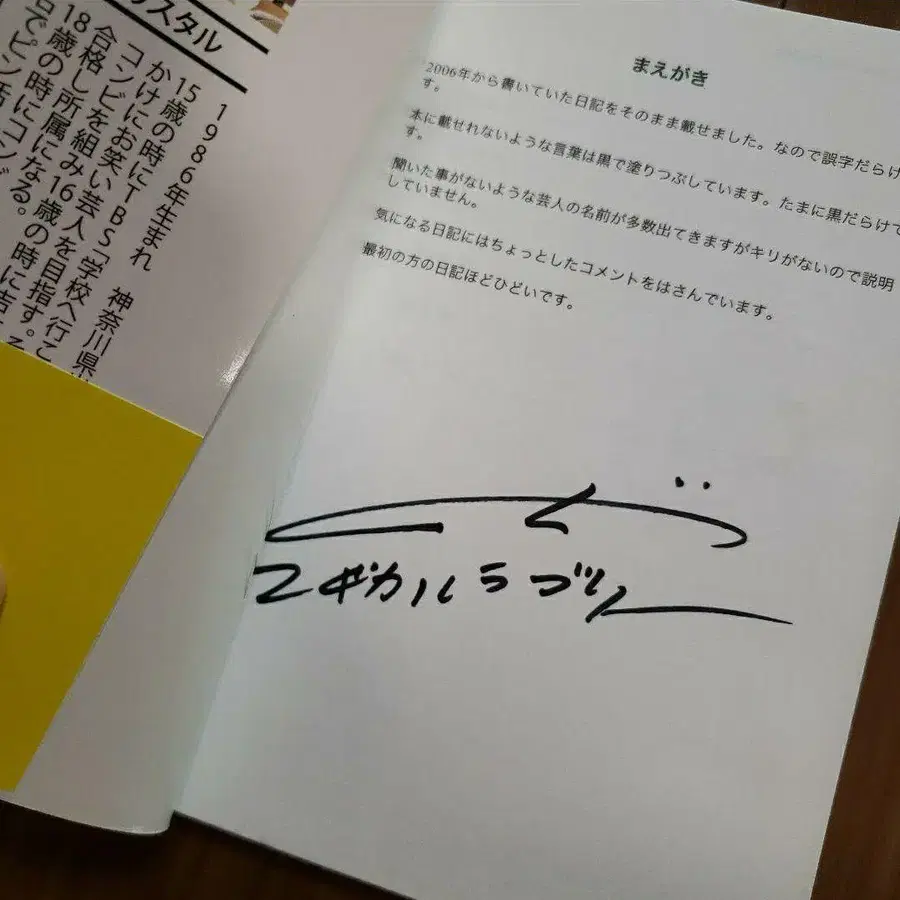 まえがき
2006年から書いていた日記をそのまま載せました。なので誤字だらけ
す。
本に載せれないような言葉は黒で塗りつぶしています。たまに黒だらけで
す。
聞いた事がないような芸人の名前が多数出てきますがキリがないので説明
していません。
気になる日記にはちょっとしたコメントをはさんでいます。
最初の方の日記ほどひどいです。
マヂカルラブリー
スタル
1986年生まれ 神奈川県
15歳の時にTBS「学校へ行こ
かけにお笑い芸人を目指す。
コンビを組み16歳の時に吉
合格し所属になる。
18歳の時にコンビ
でピン活